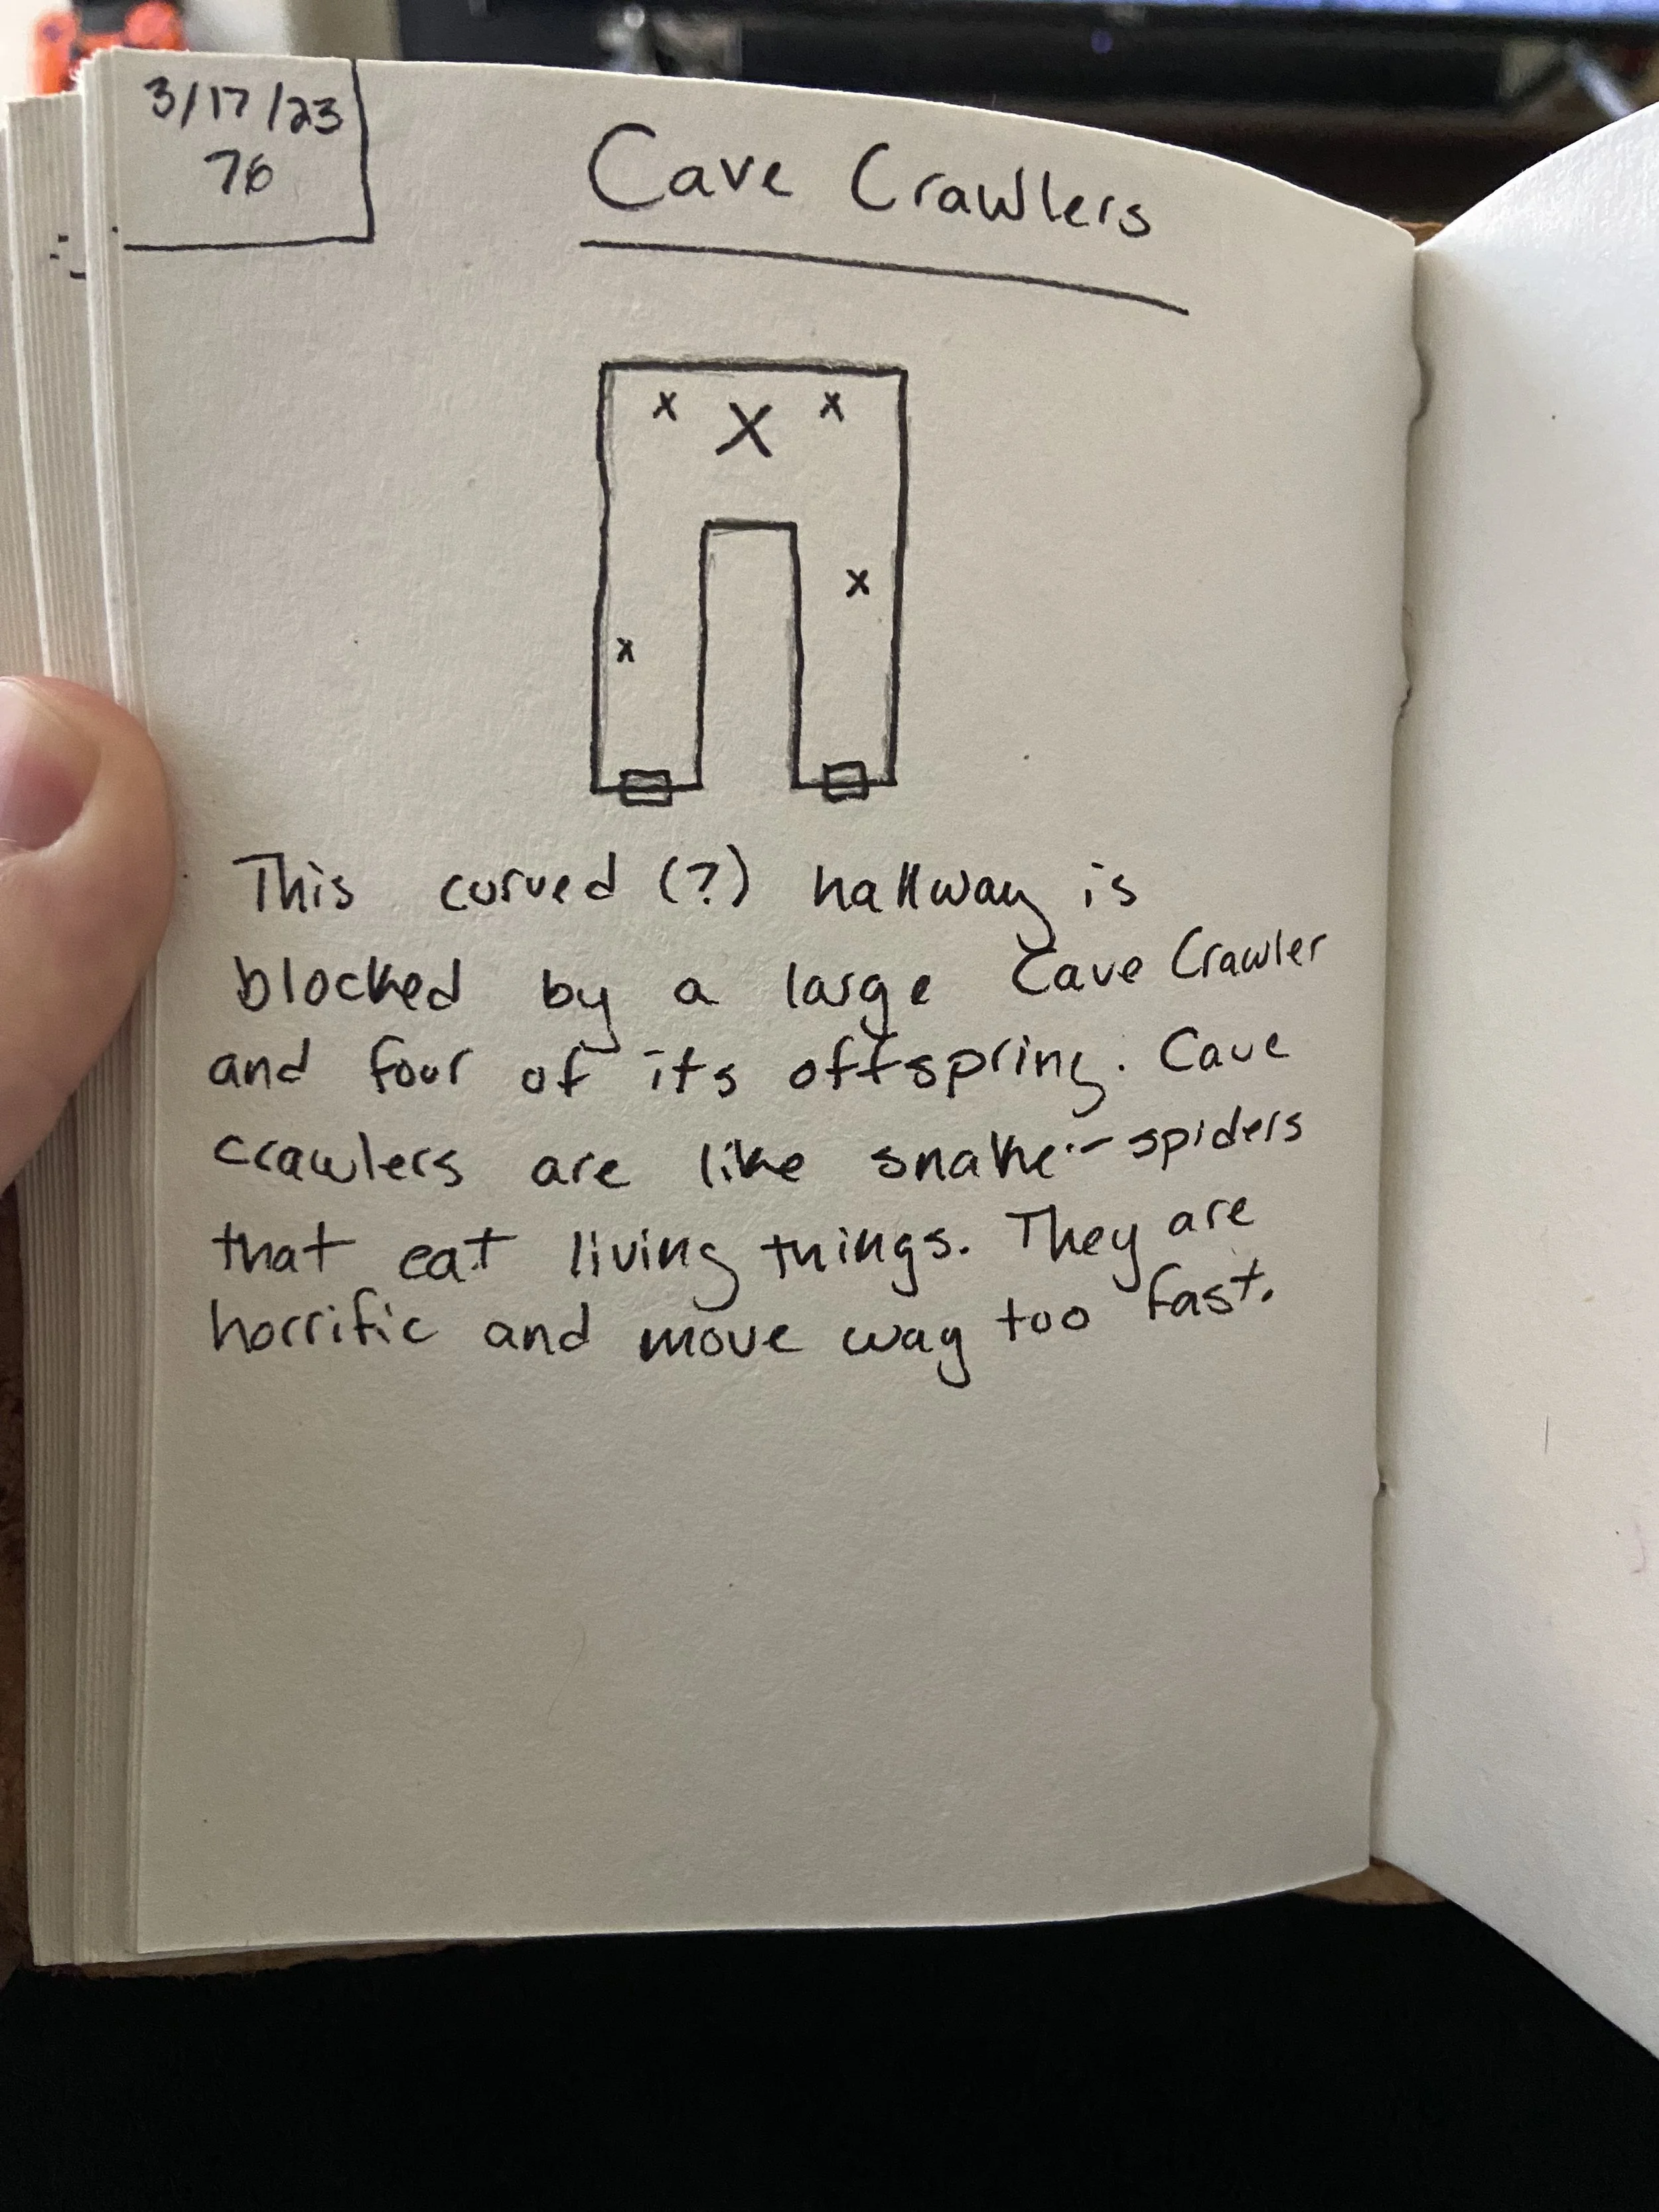 3/17/23
76
Cave Crawlers
x X x
x
x
This curved (?) hallway is
blocked by a large Cave Crawler
and four of its offspring. Cave
crawlers are like snake-spiders
that eat living things. They are
horrific and move way too fast.